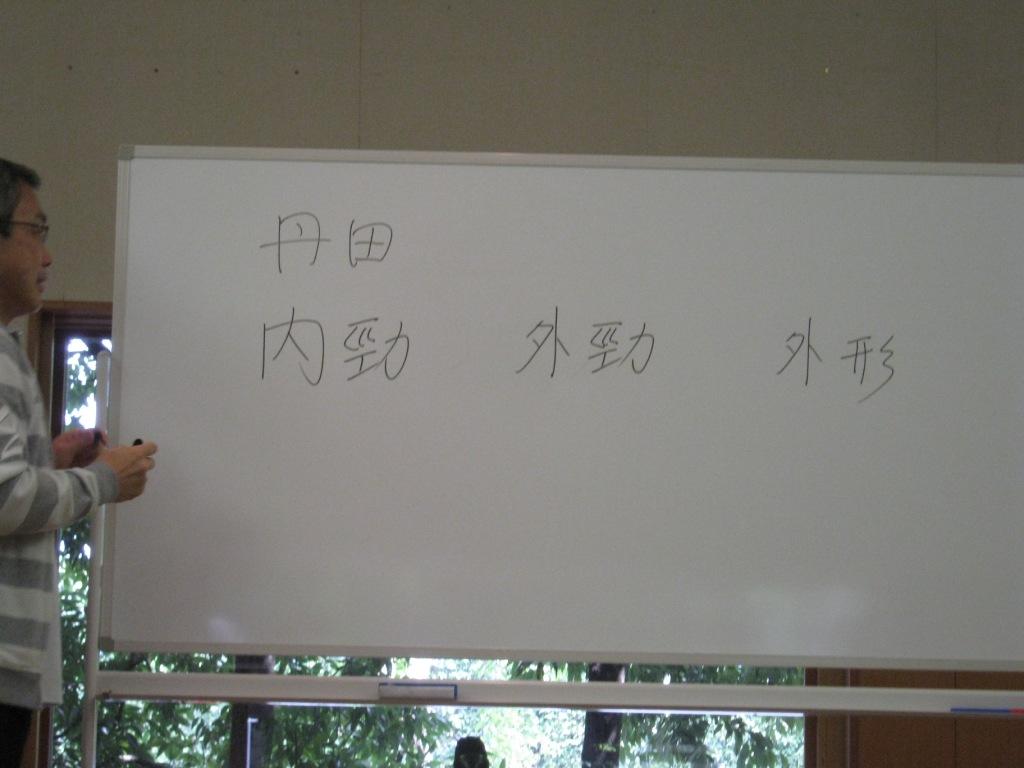 丹田
内勁 外勁 外形